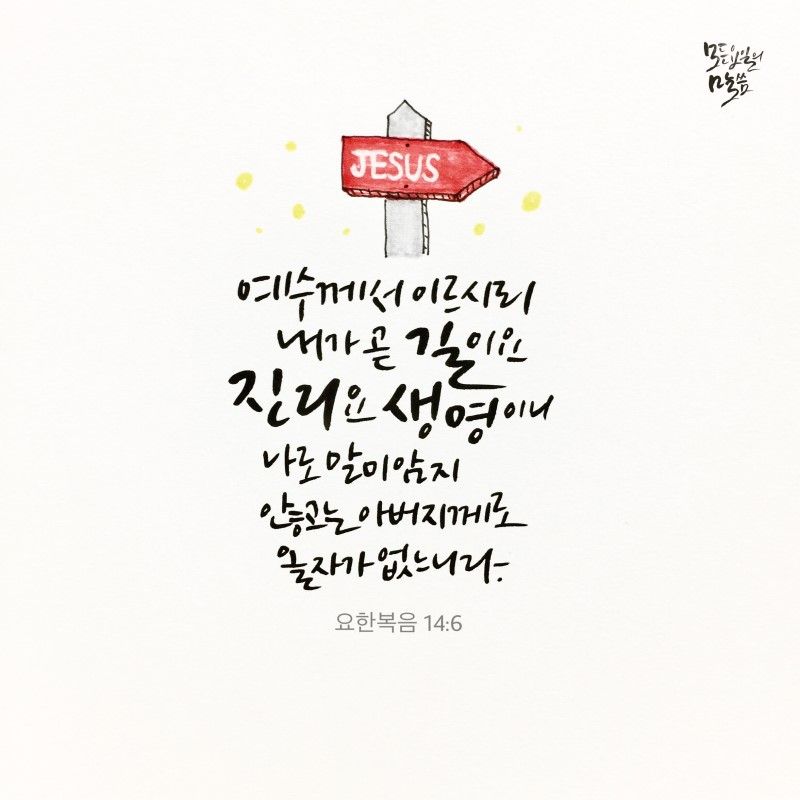 모든요일의
말씀
JESUS
예수께서 이르시되
내가 곧 길이요
진리요 생명이니
나로 말미암지
않고는 아버지께로
올 자가 없느니라-
요한복음 14:6